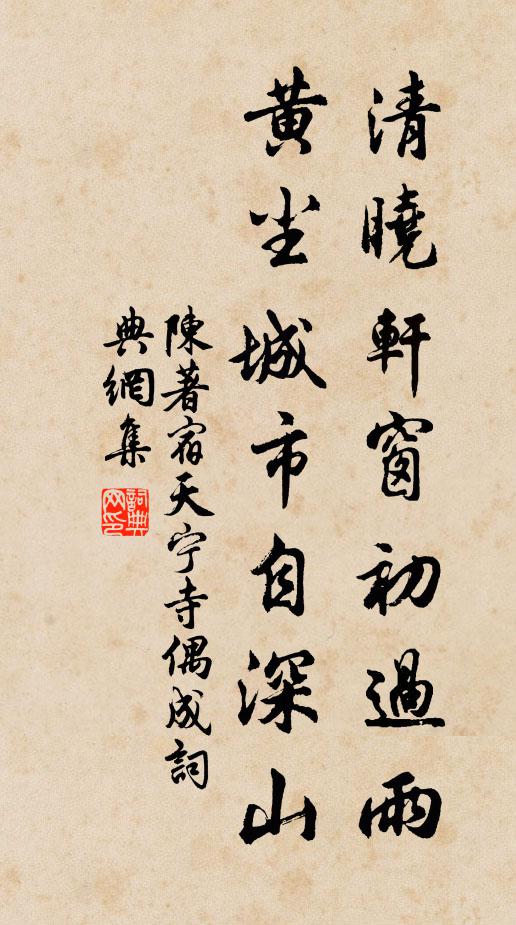 清曉軒窗初過雨
黃尘城市自深山
陳著宿天宁寺偶成詞
典網集
詞典
网印